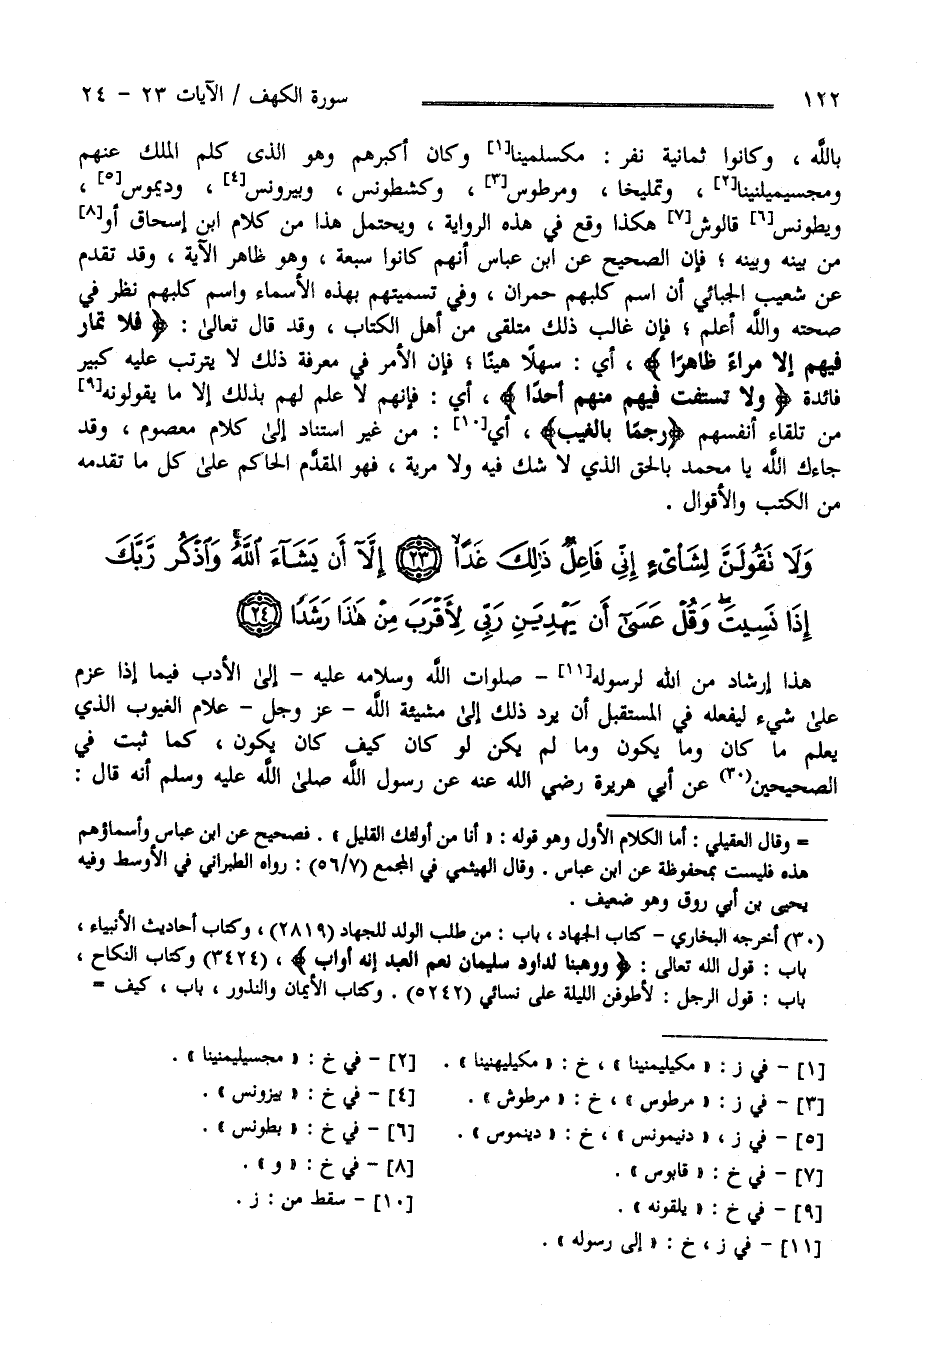 ١٢٢ سورة الكهف / الآيات ٢٣ - ٢٤
بالله ، وكانوا ثمانية نفر : مكسلمينا[١] وكان أكبرهم وهو الذى كلم الملك عنهم
ومجسيميلنينا[٢] ، وتمليخا ، ومرطوس[٣] ، وكشطونس ، وبيرونس[٤] ، وديموس[٥] ،
ويطونس[٦] قالوش[٧] هكذا وقع في هذه الرواية ، ويحتمل هذا من كلام ابن إسحاق أو[٨]
من بينه وبينه ؛ فإن الصحيح عن ابن عباس أنهم كانوا سبعة ، وهو ظاهر الآية ، وقد تقدم
عن شعيب الجبائي أن اسم كلبهم حمران ، وفي تسميتهم بهذه الأسماء واسم كلبهم نظر في
صحته والله أعلم ؛ فإن غالب ذلك متلقى من أهل الكتاب ، وقد قال تعالىٰ : ﴿ فلا تمار
فيهم إلا مراءً ظاهرًا ﴾ ، أي : سهلًا هينًا ؛ فإن الأمر في معرفة ذلك لا يترتب عليه كبير
فائدة ﴿ ولا تستفت فيهم منهم أحدًا ﴾ ، أي : فإنهم لا علم لهم بذلك إلا ما يقولونه[٩]
من تلقاء أنفسهم ﴿رجمًا بالغيب﴾ ، أي[١٠] : من غير استناد إلىٰ كلام معصوم ، وقد
جاءك الله يا محمد بالحق الذي لا شك فيه ولا مرية ، فهو المقدَّم الحاكم علىٰ كل ما تقدمه
من الكتب والأقوال .
وَلَا تَقُولَنَّ لِشَاْىۡءٍ إِنِّي فَاعِلٌ ذَٰلِكَ غَدًا ﴿٢٣﴾ إِلَّآ أَن يَشَآءَ ٱللَّهُۚ وَٱذۡكُر رَّبَّكَ
إِذَا نَسِيتَۖ وَقُلۡ عَسَىٰٓ أَن يَهۡدِيَنِ رَبِّي لِأَقۡرَبَ مِنۡ هَٰذَا رَشَدًا ﴿٢٤﴾
هذا إرشاد من الله لرسوله[١١] - صلوات الله وسلامه عليه - إلىٰ الأدب فيما إذا عزم
علىٰ شيء ليفعله في المستقبل أن يرد ذلك إلىٰ مشيئة الله - عز وجل - علام الغيوب الذي
يعلم ما كان وما يكون وما لم يكن لو كان كيف كان يكون ، كما ثبت في
الصحيحين(٣٠) عن أبي هريرة رضي الله عنه عن رسول الله صلىٰ الله عليه وسلم أنه قال :
= وقال العقيلي : أما الكلام الأول وهو قوله : « أنا من أولئك القليل » . فصحيح عن ابن عباس وأسماؤهم
هذه فليست بمحفوظة عن ابن عباس . وقال الهيثمي في المجمع (٥٦/٧) : رواه الطبراني في الأوسط وفيه
يحيى بن أبي روق وهو ضعيف .
(٣٠) أخرجه البخاري - كتاب الجهاد ، باب : من طلب الولد للجهاد (٢٨١٩) ، وكتاب أحاديث الأنبياء ،
باب : قول الله تعالى : ﴿ ووهبنا لداود سليمان نعم العبد إنه أواب ﴾ ، (٣٤٢٤) وكتاب النكاح ،
باب : قول الرجل : لأطوفن الليلة على نسائي (٥٢٤٢) . وكتاب الأيمان والنذور ، باب ، كيف =
[١] - في ز : « مكيليمنينا » ، خ : « مكيليهنينا » . [٢] - في خ : « مجسيليمنينا » .
[٣] - في ز : « مرطوس » ، خ : « مرطوش » . [٤] - في خ : « بيزونس » .
[٥] - في ز ، « دنيمونس » ، خ : « دينموس » . [٦] - في خ : « بطونس » .
[٧] - في خ : « قابوس » . [٨] - في خ : « و » .
[٩] - في خ : « يلقونه » . [١٠] - سقط من : ز .
[١١] - في ز ، خ : « إلى رسوله » .